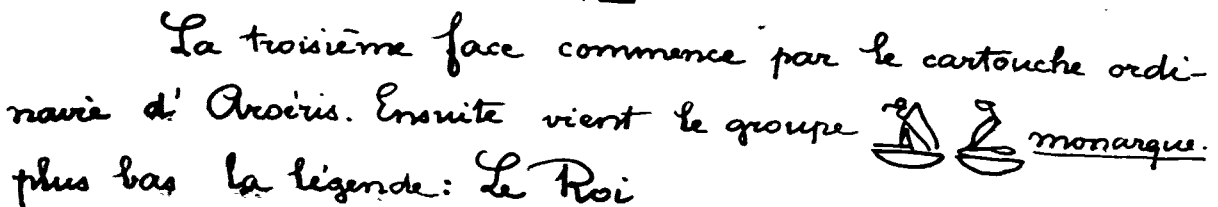 La troisième face commence par le cartouche ordi-
naire d' Aroëris. Ensuite vient le groupe 𓅒 𓅑 monarque.
plus bas la légende: Le Roi